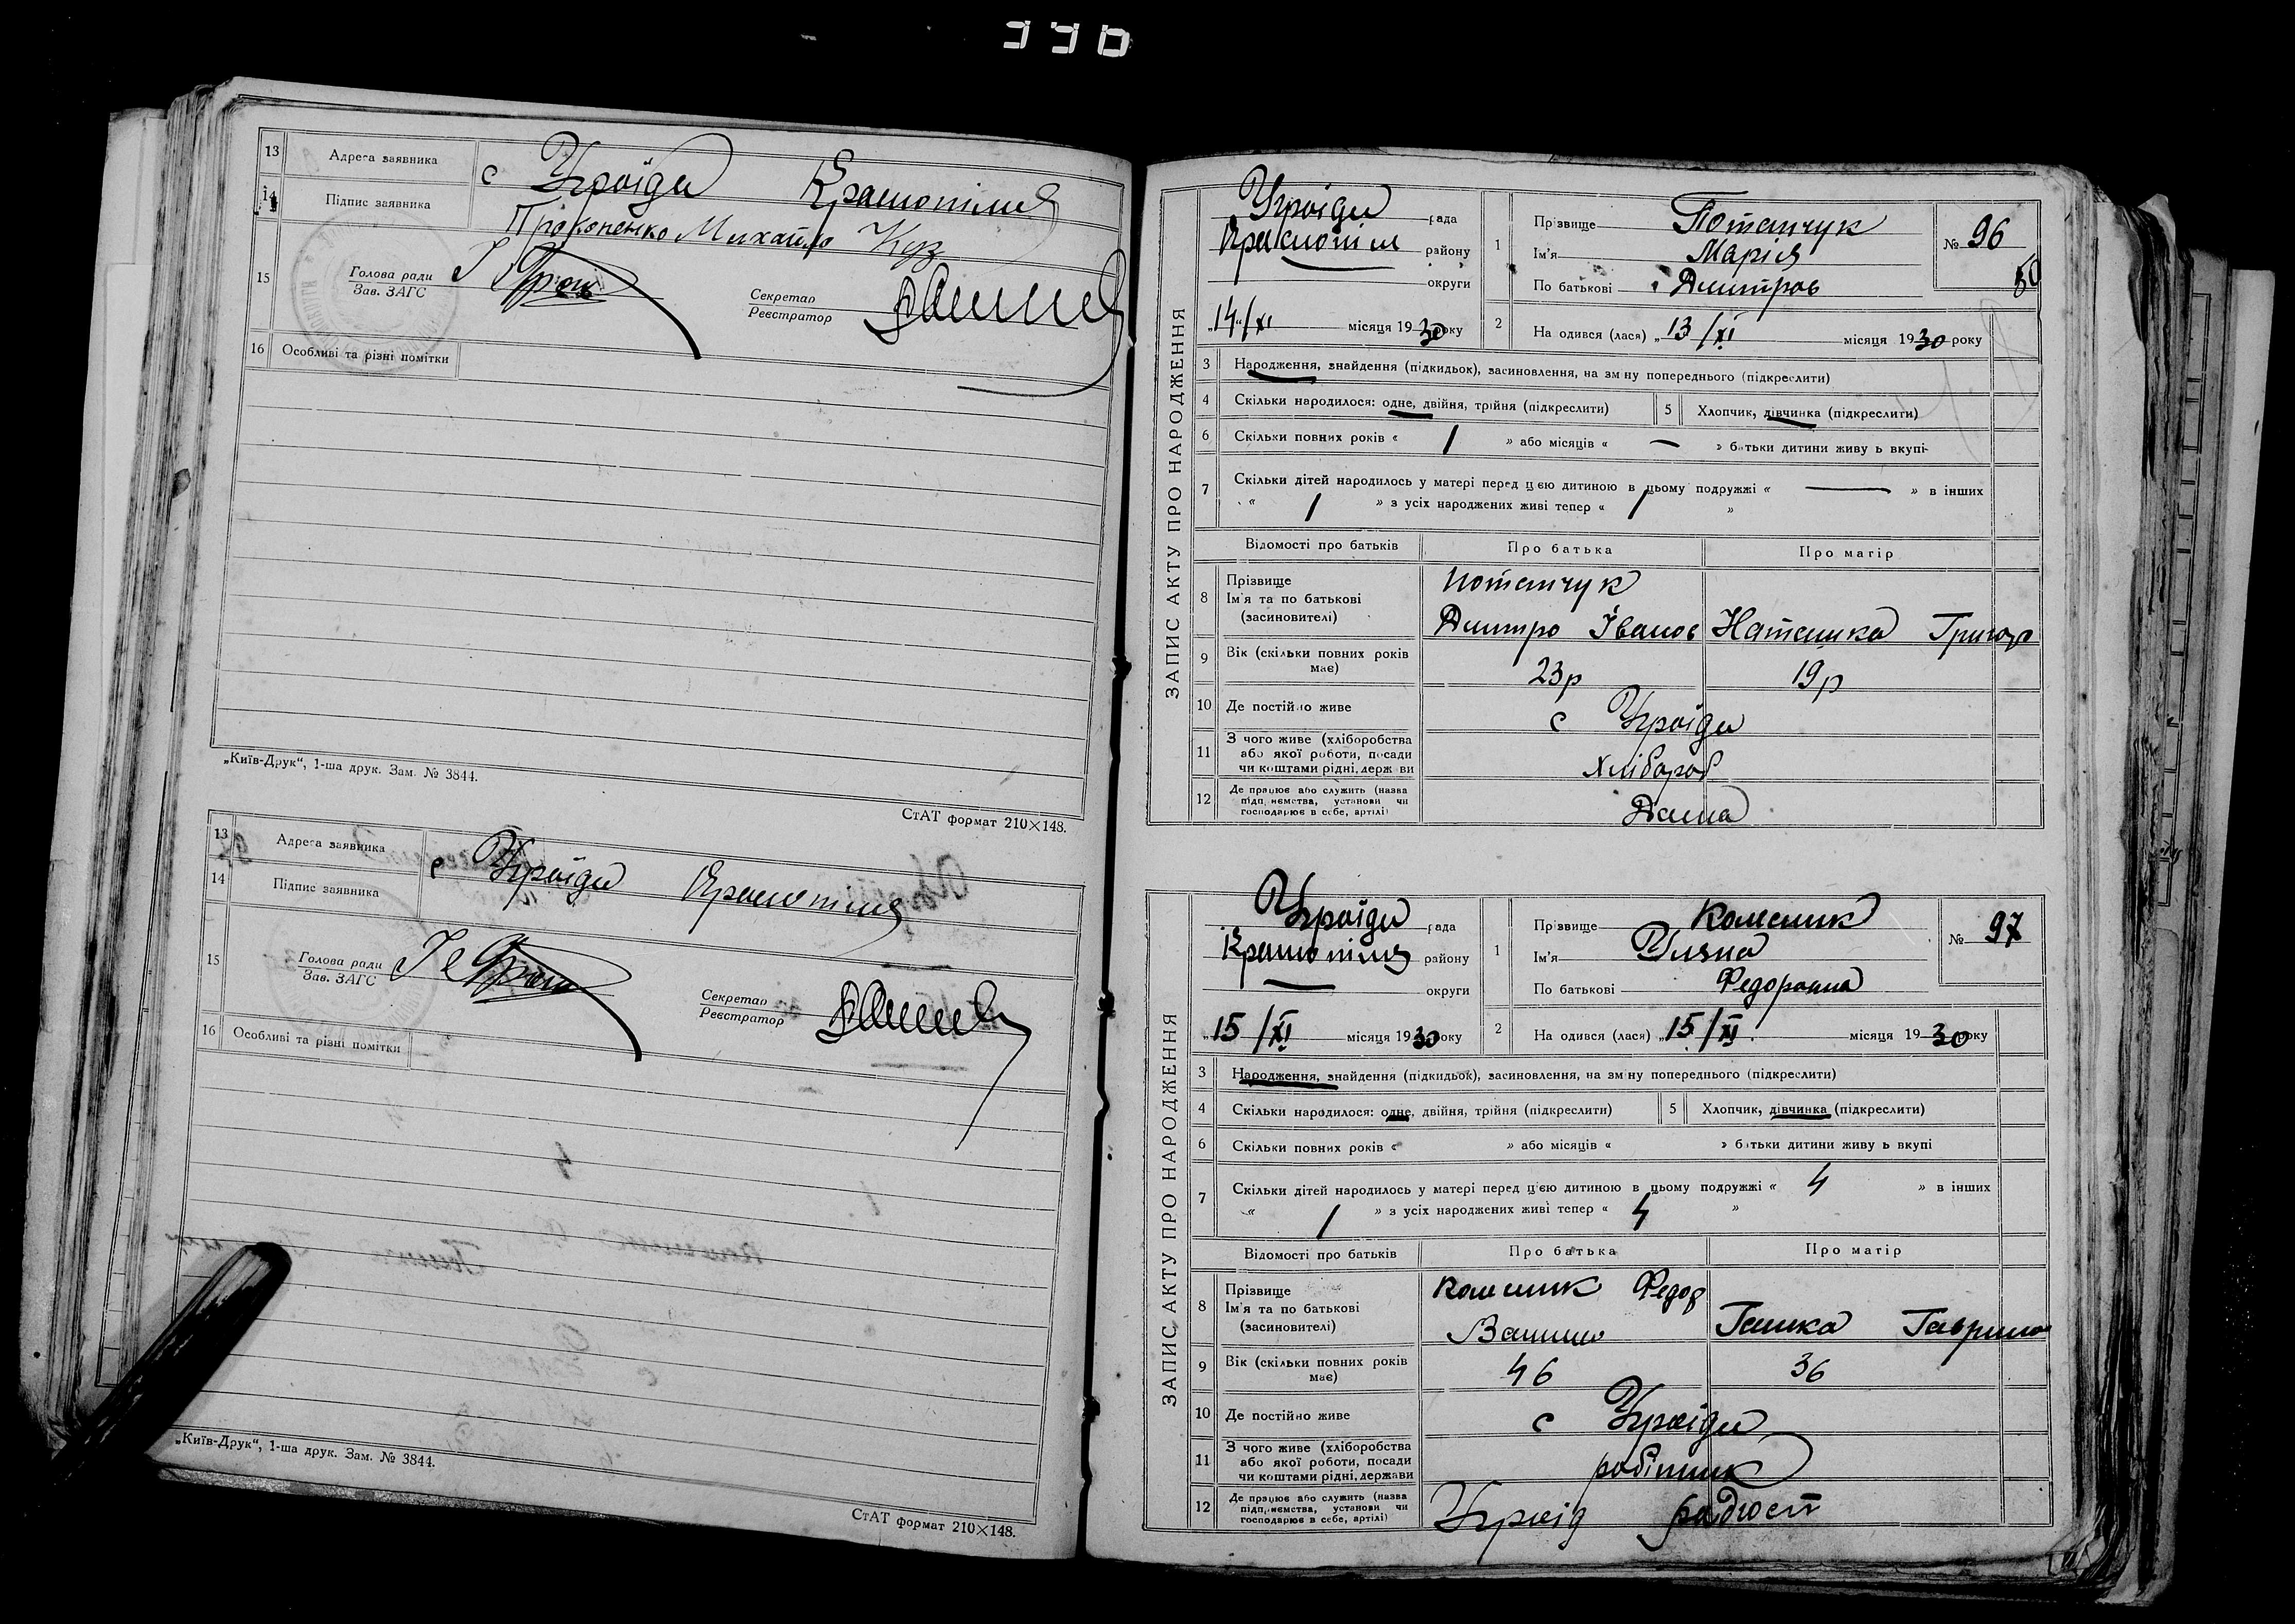 13 Адреса заявника с Угроїди Краснопілля
14 Підпис заявника Прокопенко Михайло Куз
15 Голова ради
Зав. ЗАГС
Секретар
Реєстратор
16 Особливі та різні помітки
„Київ-Друк“, 1-ша друк. Зам. № 3844.
СтАТ формат 210×148.
13 Адреса заявника с Угроїди Краснопілля
14 Підпис заявника
15 Голова ради
Зав. ЗАГС
Секретар
Реєстратор
16 Особливі та різні помітки
„Київ-Друк“, 1-ша друк. Зам. № 3844.
СтАТ формат 210×148.
ЗАПИС АКТУ ПРО НАРОДЖЕННЯ
Угроїди рада
Краснопіл району
округи
„14“/XI місяця 1930 року
1 Прізвище Потапчук
Ім'я Марія
По батькові Дмитров
№ 96
2 На одився (лася) „13/XI місяця 1930 року
3 Народження, знайдення (підкидьок), засиновлення, на зміну попереднього (підкреслити)
4 Скільки народилося: одне, двійня, трійня (підкреслити) 5 Хлопчик, дівчинка (підкреслити)
6 Скільки повних років « 1 » або місяців « — » батьки дитини живуть вкупі
7 Скільки дітей народилось у матері перед цією дитиною в цьому подружжі « — » в інших
« 1 » з усіх народжених живі тепер « 1 »
Відомості про батьків Про батька Про матір
8 Прізвище
Ім'я та по батькові
(засиновителі)
Потапчук
Дмитро Іванов Наташка Григор
9 Вік (скільки повних років
має) 23р 19р
10 Де постійно живе с Угроїди
11 З чого живе (хліборобства
або якої роботи, посади
чи коштами рідні, держави
Хлібороб
12 Де працює або служить (назва
підприємства, установи чи
господарює в себе, артілі)
Дома
ЗАПИС АКТУ ПРО НАРОДЖЕННЯ
Угроїди рада
Краснопілля району
округи
„15/XI місяця 1930 року
1 Прізвище Колесник
Ім'я Уляна
По батькові Федоровна
№ 97
2 На одився (лася) „15/XI місяця 1930 року
3 Народження, знайдення (підкидьок), засиновлення, на зміну попереднього (підкреслити)
4 Скільки народилося: одне, двійня, трійня (підкреслити) 5 Хлопчик, дівчинка (підкреслити)
6 Скільки повних років « » або місяців « » батьки дитини живуть вкупі
7 Скільки дітей народилось у матері перед цією дитиною в цьому подружжі « 4 » в інших
« 1 » з усіх народжених живі тепер « 4 »
Відомості про батьків Про батька Про матір
8 Прізвище
Ім'я та по батькові
(засиновителі)
Колесник Федор
Гашка Гаврило
9 Вік (скільки повних років
має) 46 36
10 Де постійно живе с Угроїди
11 З чого живе (хліборобства
або якої роботи, посади
чи коштами рідні, держави
робітник
12 Де працює або служить (назва
підприємства, установи чи
господарює в себе, артілі)
Угроїд радгосп